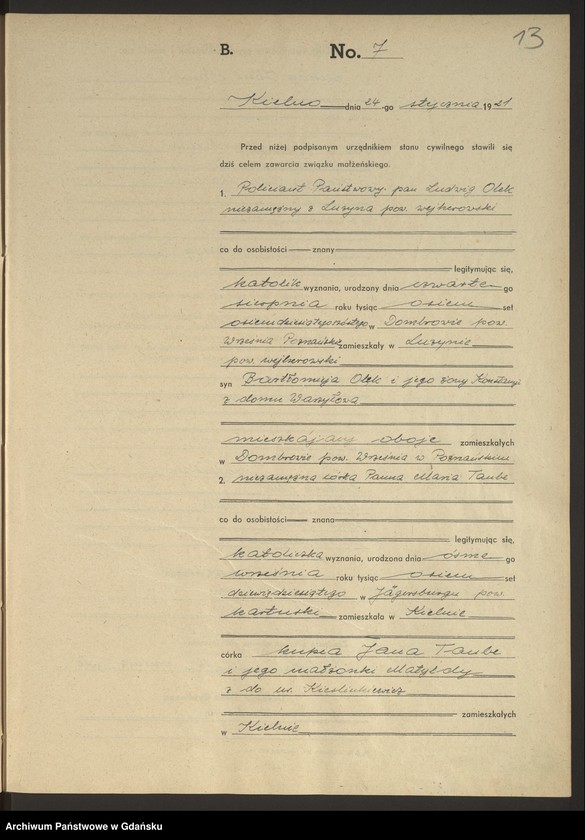 13
B. No. 7
Kielno dnia 24 go stycznia 1921
Przed niżej podpisanym urzędnikiem stanu cywilnego stawili się
dziś celem zawarcia związku małżeńskiego.
1. Policiant Państwowy pan Ludwig Olek
niezamężny z Luzyna pow. wejherowski
co do osobistości znany
legitymując się,
katolik wyznania, urodzony dnia czwarte go
sierpnia roku tysiąc osiem set
w Dombrowie pow.
Września Poznańskie zamieszkały w Luzynie
pow. wejherowski
syn Bartłomieja Olek i jego żony
z domu
mieszkający oboje zamieszkałych
w Dombrowie pow. Września w Poznańskiem
2. niezamężna córka Panna Maria Taube
co do osobistości znana
legitymując się,
katoliczka wyznania, urodzona dnia ósme go
września roku tysiąc osiem set
dziewięćdziesiątego w Jägersburgu pow.
kartuski zamieszkała w Kielnie
córka kupca Jana Taube
i jego małżonki Matyldy
z do. ur.
zamieszkałych
w Kielnie
Archiwum Państwowe w Gdańsku